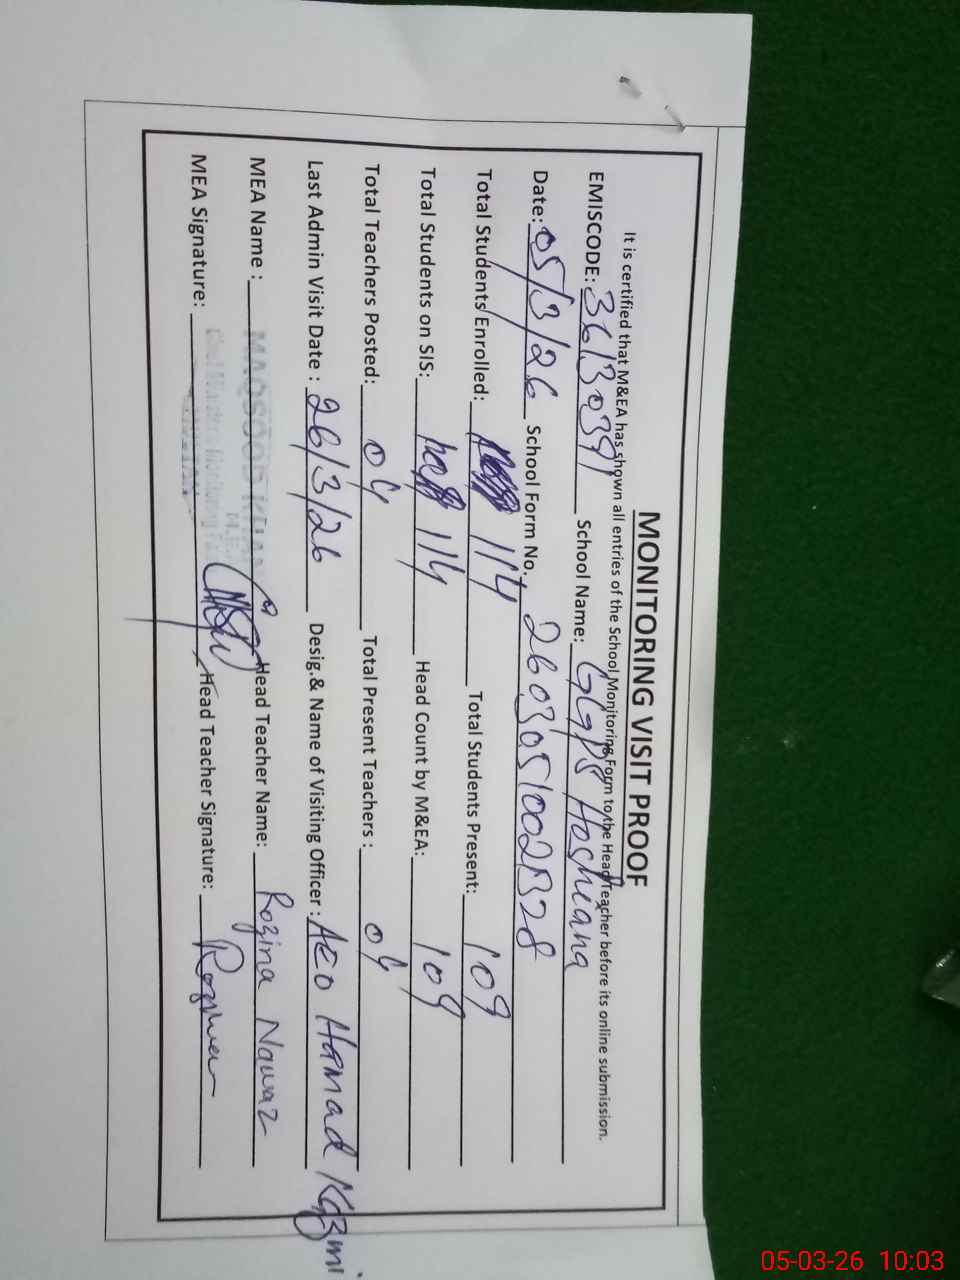 MONITORING VISIT PROOF
It is certified that M&EA has shown all entries of the School Monitoring Form to the Head Teacher before its online submission.
EMISCODE: 36130391 School Name: GGPS Hoshiana
Date: 05/3/26 School Form No. 2603051002B28
Total Students Enrolled: 114 Total Students Present: 109
Total Students on SIS: 114 Head Count by M&EA: 109
Total Teachers Posted: 04 Total Present Teachers : 04
Last Admin Visit Date : 26/3/26 Desig.& Name of Visiting Officer : AEO Hamad Kazmi
MEA Name : MAQSOOD KHAN Head Teacher Name: Rozina Nawaz
MEA Signature: Head Teacher Signature:
05-03-26 10:03